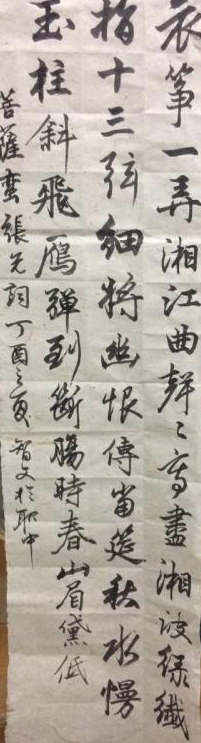 哀箏一弄湘江曲聲々寫盡湘波綠纖
指十三弦細將幽恨傳當筵秋水慢
玉柱斜飛鴈彈到斷腸時春山眉黛低
菩薩蠻張先詞丁酉之夏智文於聊中